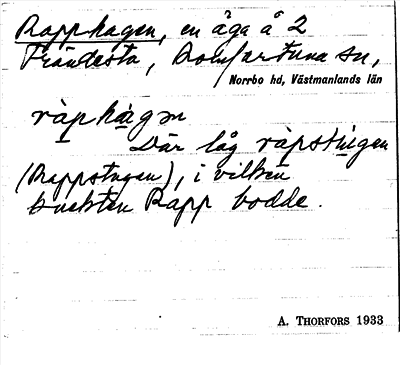 Rapphagen, en äga å 2
Frändesta, Romfartuna sn,
Norrbo hd, Västmanlands län
ràphàgɐn
Där låg ràpstùgen
(Rappstugan), i vilken
knekten Rapp bodde.
A. THORFORS 1933